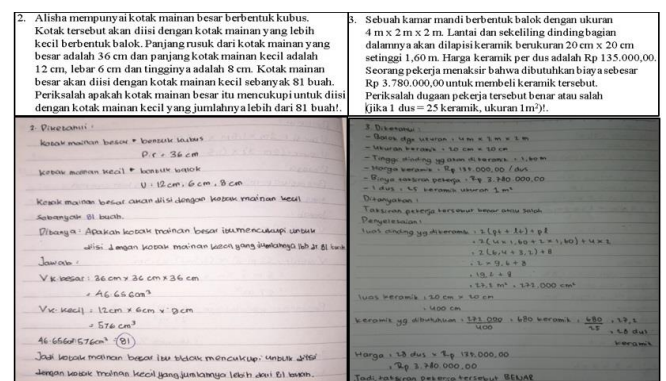 2. Alisha mempunyai kotak mainan besar berbentuk kubus.
Kotak tersebut akan diisi dengan kotak mainan yang lebih
kecil berbentuk balok. Panjang rusuk dari kotak mainan yang
besar adalah 36 cm dan panjang kotak mainan kecil adalah
12 cm, lebar 6 cm dan tingginya adalah 8 cm. Kotak mainan
besar akan diisi dengan kotak mainan kecil sebanyak 81 buah.
Periksalah apakah kotak mainan besar itu mencukupi untuk diisi
dengan kotak mainan kecil yang jumlahnya lebih dari 81 buah!.
2. Diketahui :
Kotak mainan besar + bentuk kubus
P.r = 36 cm
Kotak mainan kecil + bentuk balok
U : 12 cm, 6 cm, 8 cm
Kotak mainan besar akan diisi dengan kotak mainan kecil
sebanyak 81 buah.
Ditanya : Apakah kotak mainan besar itu mencukupi untuk
diisi dengan kotak mainan kecil yang jumlahnya lbh dr 81 buah
Jawab :
V K. besar : 36 cm x 36 cm x 36 cm
= 46.656 cm³
V K. kecil : 12 cm x 6 cm x 8 cm
= 576 cm³
46.656 : 576 cm³ = 81
Jadi kotak mainan besar itu tidak mencukupi untuk diisi
dengan kotak mainan kecil yang jumlahnya lebih dari 81 buah.
3. Sebuah kamar mandi berbentuk balok dengan ukuran
4 m x 2 m x 2 m. Lantai dan sekeliling dinding bagian
dalamnya akan dilapisi keramik berukuran 20 cm x 20 cm
setinggi 1,60 m. Harga keramik per dus adalah Rp 135.000,00.
Seorang pekerja menaksir bahwa dibutuhkan biaya sebesar
Rp 3.780.000,00 untuk membeli keramik tersebut.
Periksalah dugaan pekerja tersebut benar atau salah
(jika 1 dus = 25 keramik, ukuran 1m²)!.
3. Diketahui :
- Balok dgn ukuran : 4m x 2m x 2m
- Ukuran keramik : 20 cm x 20 cm
- Tinggi dinding yg akan di keramik : 1,60 m
- Harga keramik : Rp 135.000,00 / dus
- Biaya taksiran pekerja : Rp 3.780.000,00
- 1 dus : 25 keramik ukuran 1 m²
Ditanyakan :
Taksiran pekerja tersebut benar atau salah
Penyelesaian :
luas dinding yg dikeramik : 2 (pt + lt) + pl
: 2 (4 x 1,60 + 2 x 1,60) + 4 x 2
: 2 (6,4 + 3,2) + 8
: 2 x 9,6 + 8
: 19,2 + 8
luas keramik : 20 cm x 20 cm
: 400 cm
Harga : 28 dus x Rp 135.000,00
: Rp 3.780.000,00
Jadi taksiran pekerja tersebut BENAR